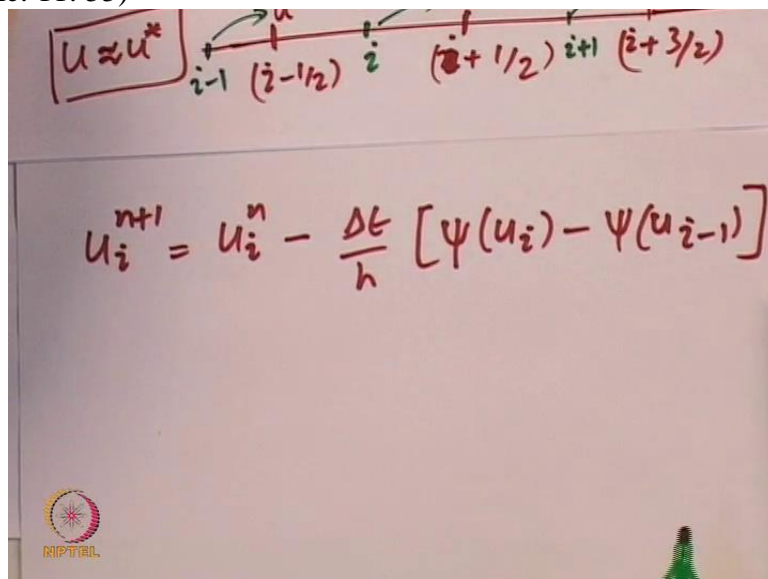 u
U ≈ u*
i-1 (i-1/2) i (i+1/2) i+1 (i+3/2)
u_i^{n+1} = u_i^n - Δt/h [ψ(u_i) - ψ(u_{i-1})]
NPTEL